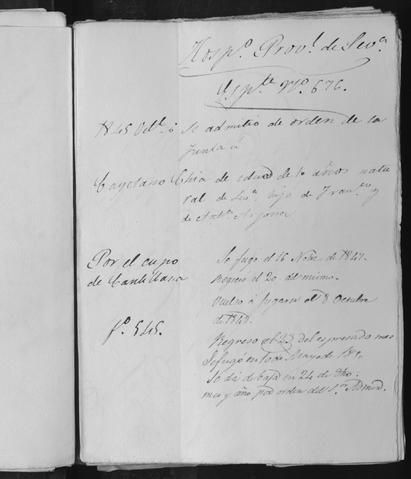 Hosp.o Prov.l de Sev.a
Exp.te N.o 676.
1845 Oct.e 6 Se admitio de orden de la
Junta á
Cayetano Chia de edad de 10 años natu
ral de Sev.a hijo de Fran.co y
de Ant.a Arjona
Por el cupo
de Cantillana
f.o 545.
Se fugó el 16 Nobre de 1847.
Regresó el 20 del mismo.
Vuelve á fugarse el 8 Octubre
de 1849.
Regreso el 23 del espresado mes
Se fugó en Mayo de
Se dió de baja en 24 de dho
mes y año por orden del S.or Admor.